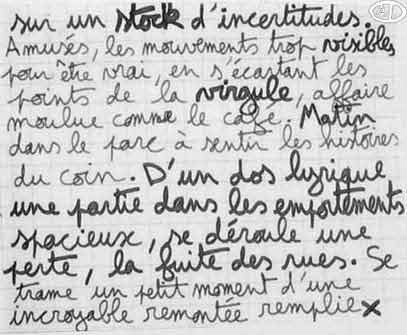 sur un stock d'incertitudes.
Amusés, les mouvements trop visibles
pour être vrai, en s'écartant les
points de la virgule, affaire
moulue comme le café. Matin
dans le parc à sentir les histoires
du coin. D'un dos lyrique
une partie dans les emportements
spacieux, se déroule une
perte, la fuite des rues. Se
trame un petit moment d'une
incroyable remontée remplie x